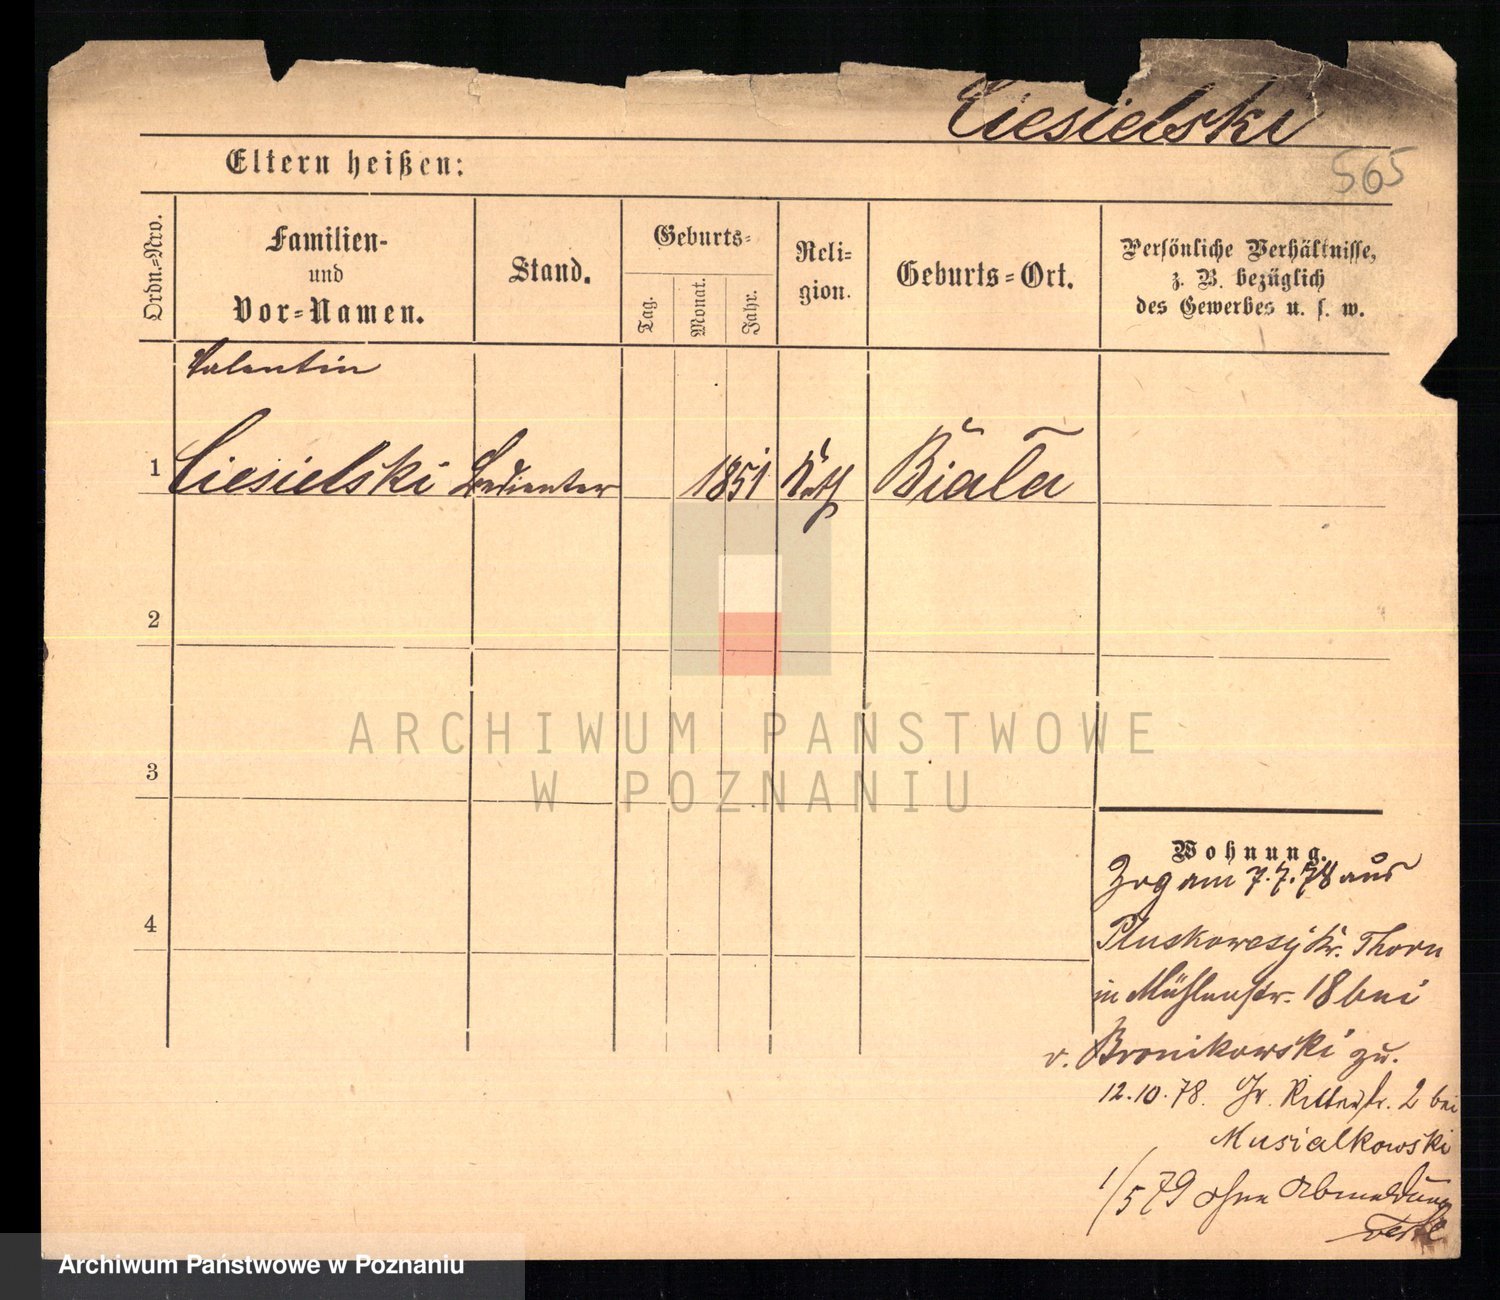 Ciesielski
565
Eltern heißen:
Ordn.-Nro.
Familien-
und
Vor-Namen.
Stand.
Geburts-
Tag.
Monat.
Jahr.
Reli-
gion.
Geburts-Ort.
Persönliche Verhältnisse,
z. B. bezüglich
des Gewerbes u. s. w.
Valentin
1 Ciesielski Bedienter 1851 Kath Biała
2
3
4
ARCHIWUM PAŃSTWOWE
W POZNANIU
Wohnung.
Zog am 7.7.78 aus
Pluskowesy Kr. Thorn
in Mühlenstr. 18 bei
v. Bronikowski zu.
12.10.78. Gr. Ritterstr. 2 bei
Musialkowski
1/5 79 ohne Abmeldung
Archiwum Państwowe w Poznaniu